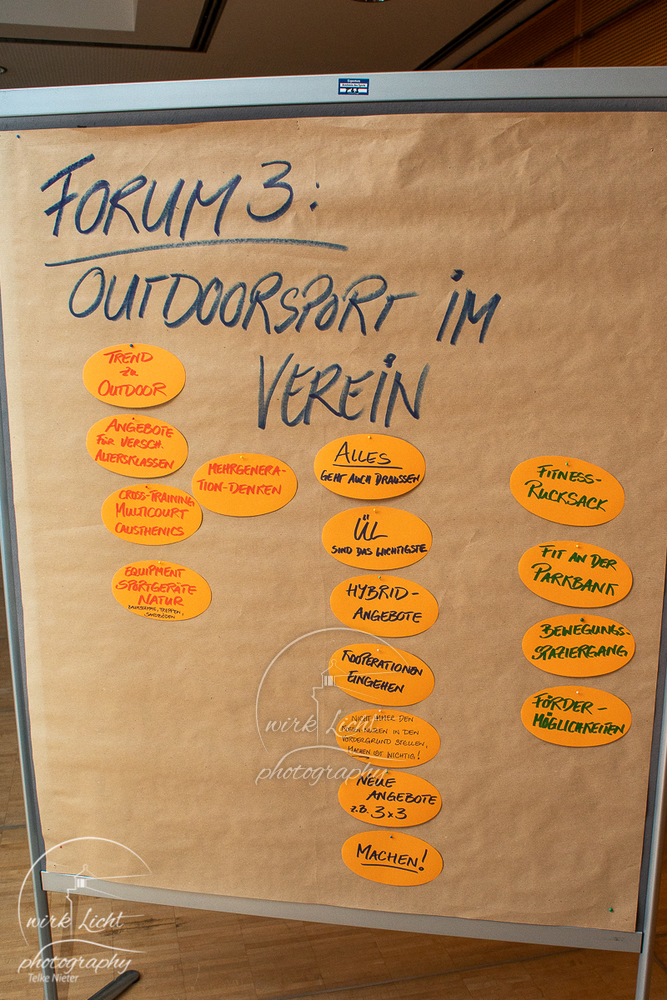 FORUM 3:
OUTDOORSPORT IM
VEREIN
TREND
zu
OUTDOOR
ANGEBOTE
FÜR VERSCH.
ALTERSKLASSEN
CROSS-TRAINING
MULTICOURT
CALISTHENICS
EQUIPMENT
SPORTGERÄTE
NATUR
BAUMSTÄMME, TREPPEN,
SANDBODEN
MEHRGENERA-
TION-DENKEN
ALLES
GEHT AUCH DRAUSSEN
ÜL
SIND DAS WICHTIGSTE
HYBRID-
ANGEBOTE
KOOPERATIONEN
EINGEHEN
NICHT IMMER DEN
NUTZEN IN DEN
VORDERGRUND STELLEN,
MACHEN IST WICHTIG!
NEUE
ANGEBOTE
z.B. 3x3
MACHEN!
FITNESS-
RUCKSACK
FIT AN DER
PARKBANK
BEWEGUNGS-
SPAZIERGANG
FÖRDER-
MÖGLICHKEITEN
wirk Licht
photography
wirk Licht
photography
Telke Nieter